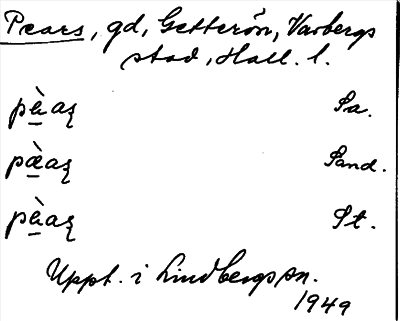 Pears, gd, Getterön, Varbergs
stad, Hall. l.
pàaʂ Sa.
pæ̀aʂ Sand.
pàaʂ St.
Uppt. i Lindbergs sn.
1949